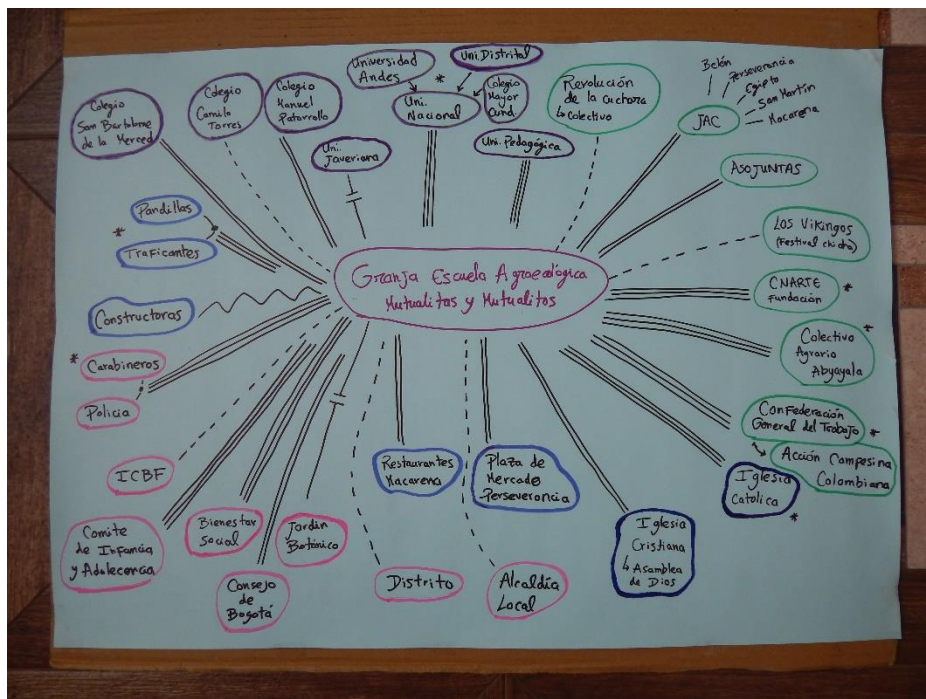 Colegio
San Bartolome
de la Merced
Colegio
Camilo
Torres
Colegio
Manuel
Patarrollo
Universidad
Andes
*
Uni. Distrital
Uni.
Nacional
Colegio
Mayor
Cund.
Uni.
Javeriana
Uni. Pedagógica
Revolución
de la Cuchara
↳ Colectivo
JAC
Belén
Perseverancia
Egipto
San Martín
Macarena
ASOJUNTAS
Los Vikingos
(Festival chicha)
CNARTE *
Fundación
*
Colectivo
Agrario
Abyayala
Confederación
General del Trabajo *
Acción Campesina
Colombiana
Iglesia
Católica
*
Iglesia
Cristiana
↳ Asamblea
de Dios
Plaza de
Mercado
Perseverancia
Restaurantes
Macarena
Alcaldía
Local
Distrito
Jardín
Botánico
Consejo
de
Bogotá
Bienestar
Social
Comite
de Infancia
y Adolecencia
ICBF
Policia
* Carabineros
Constructoras
* Traficantes
Pandillas
Granja Escuela Agroecológica
Mutualitas y Mutualitos